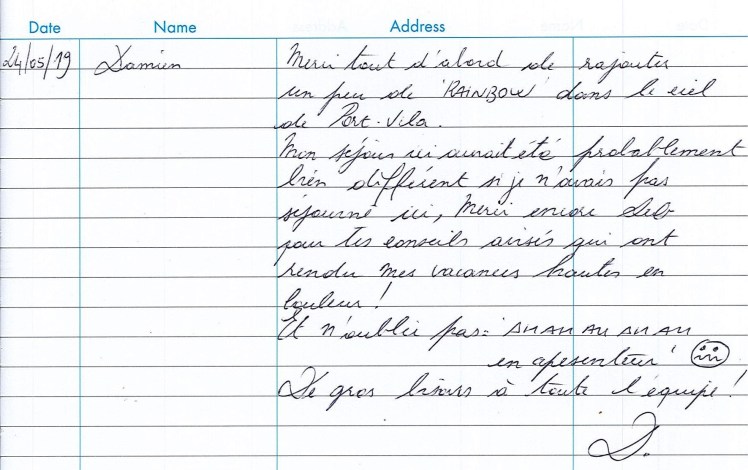 Date Name Address
24/05/19 Damien Merci tout d'abord de rajouter
un peu de 'RAINBOW' dans le ciel
de Port-Vila.
Mon séjour ici aurait été probablement
bien différent si je n'avais pas
séjourné ici, Merci encore Seb
pour tes conseils avisés qui ont
rendu mes vacances hautes en
couleur !
Et n'oublie pas:
en apesenteur !
De gros bisous à toute l'équipe !
D.